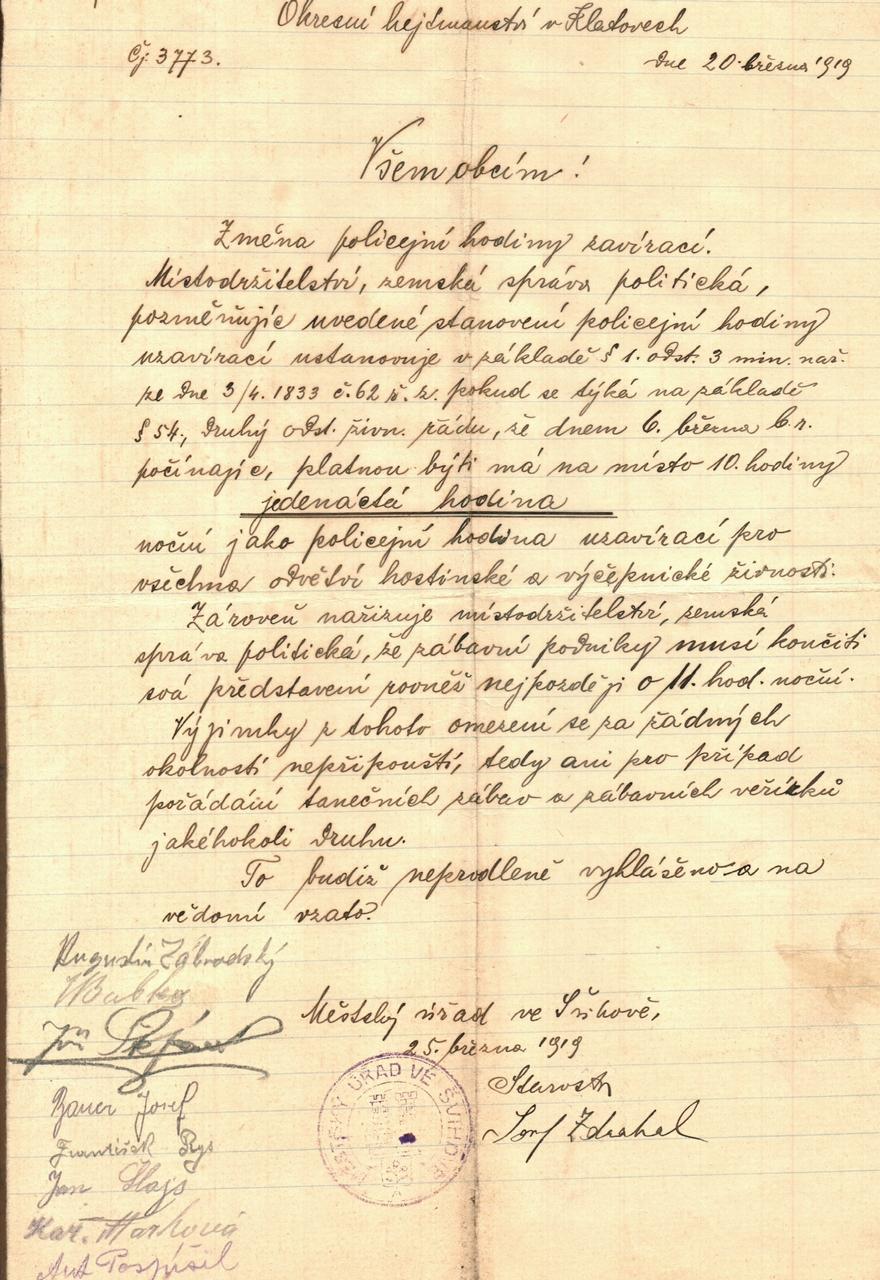 Okresní hejtmanství v Klatovech
Čj. 3773.
Dne 20. března 1919
Všem obcím!
Změna policejní hodiny zavírací.
Místodržitelství, zemská správa politická,
pozměňujíc uvedené stanovení policejní hodiny
uzavírací ustanovuje v základě § 1. odst. 3 min. nař.
ze dne 3/4. 1833 č. 62 ř. z. pokud se týká na základě
§ 54, druhý odst. živn. řádu, že dnem 6. března b.r.
počínajíc, platnou býti má na místo 10. hodiny
jedenáctá hodina
noční jako policejní hodina uzavírací pro
všechna odvětví hostinské a výčepnické živnosti.
Zároveň nařizuje místodržitelství, zemská
správa politická, že zábavní podniky musí končiti
svá představení rovněž nejpozději o 11. hod. noční.
Výjimky z tohoto omezení se za žádných
okolností nepřipouští, tedy ani pro případ
pořádání tanečních zábav a zábavních večírků
jakéhokoli druhu.
To budiž neprodleně vyhlášeno a na
vědomí vzato.
Augustin Zábrodský
Babka
Jiří
Městský úřad ve Švihově,
25. března 1919
Starosta
Josef Zdrahal
MĚSTSKÝ ÚŘAD VE ŠVIHOVĚ
Bauer Josef
František Rys
Jan Hajs
Kař. Marková
Ant Pospíšil